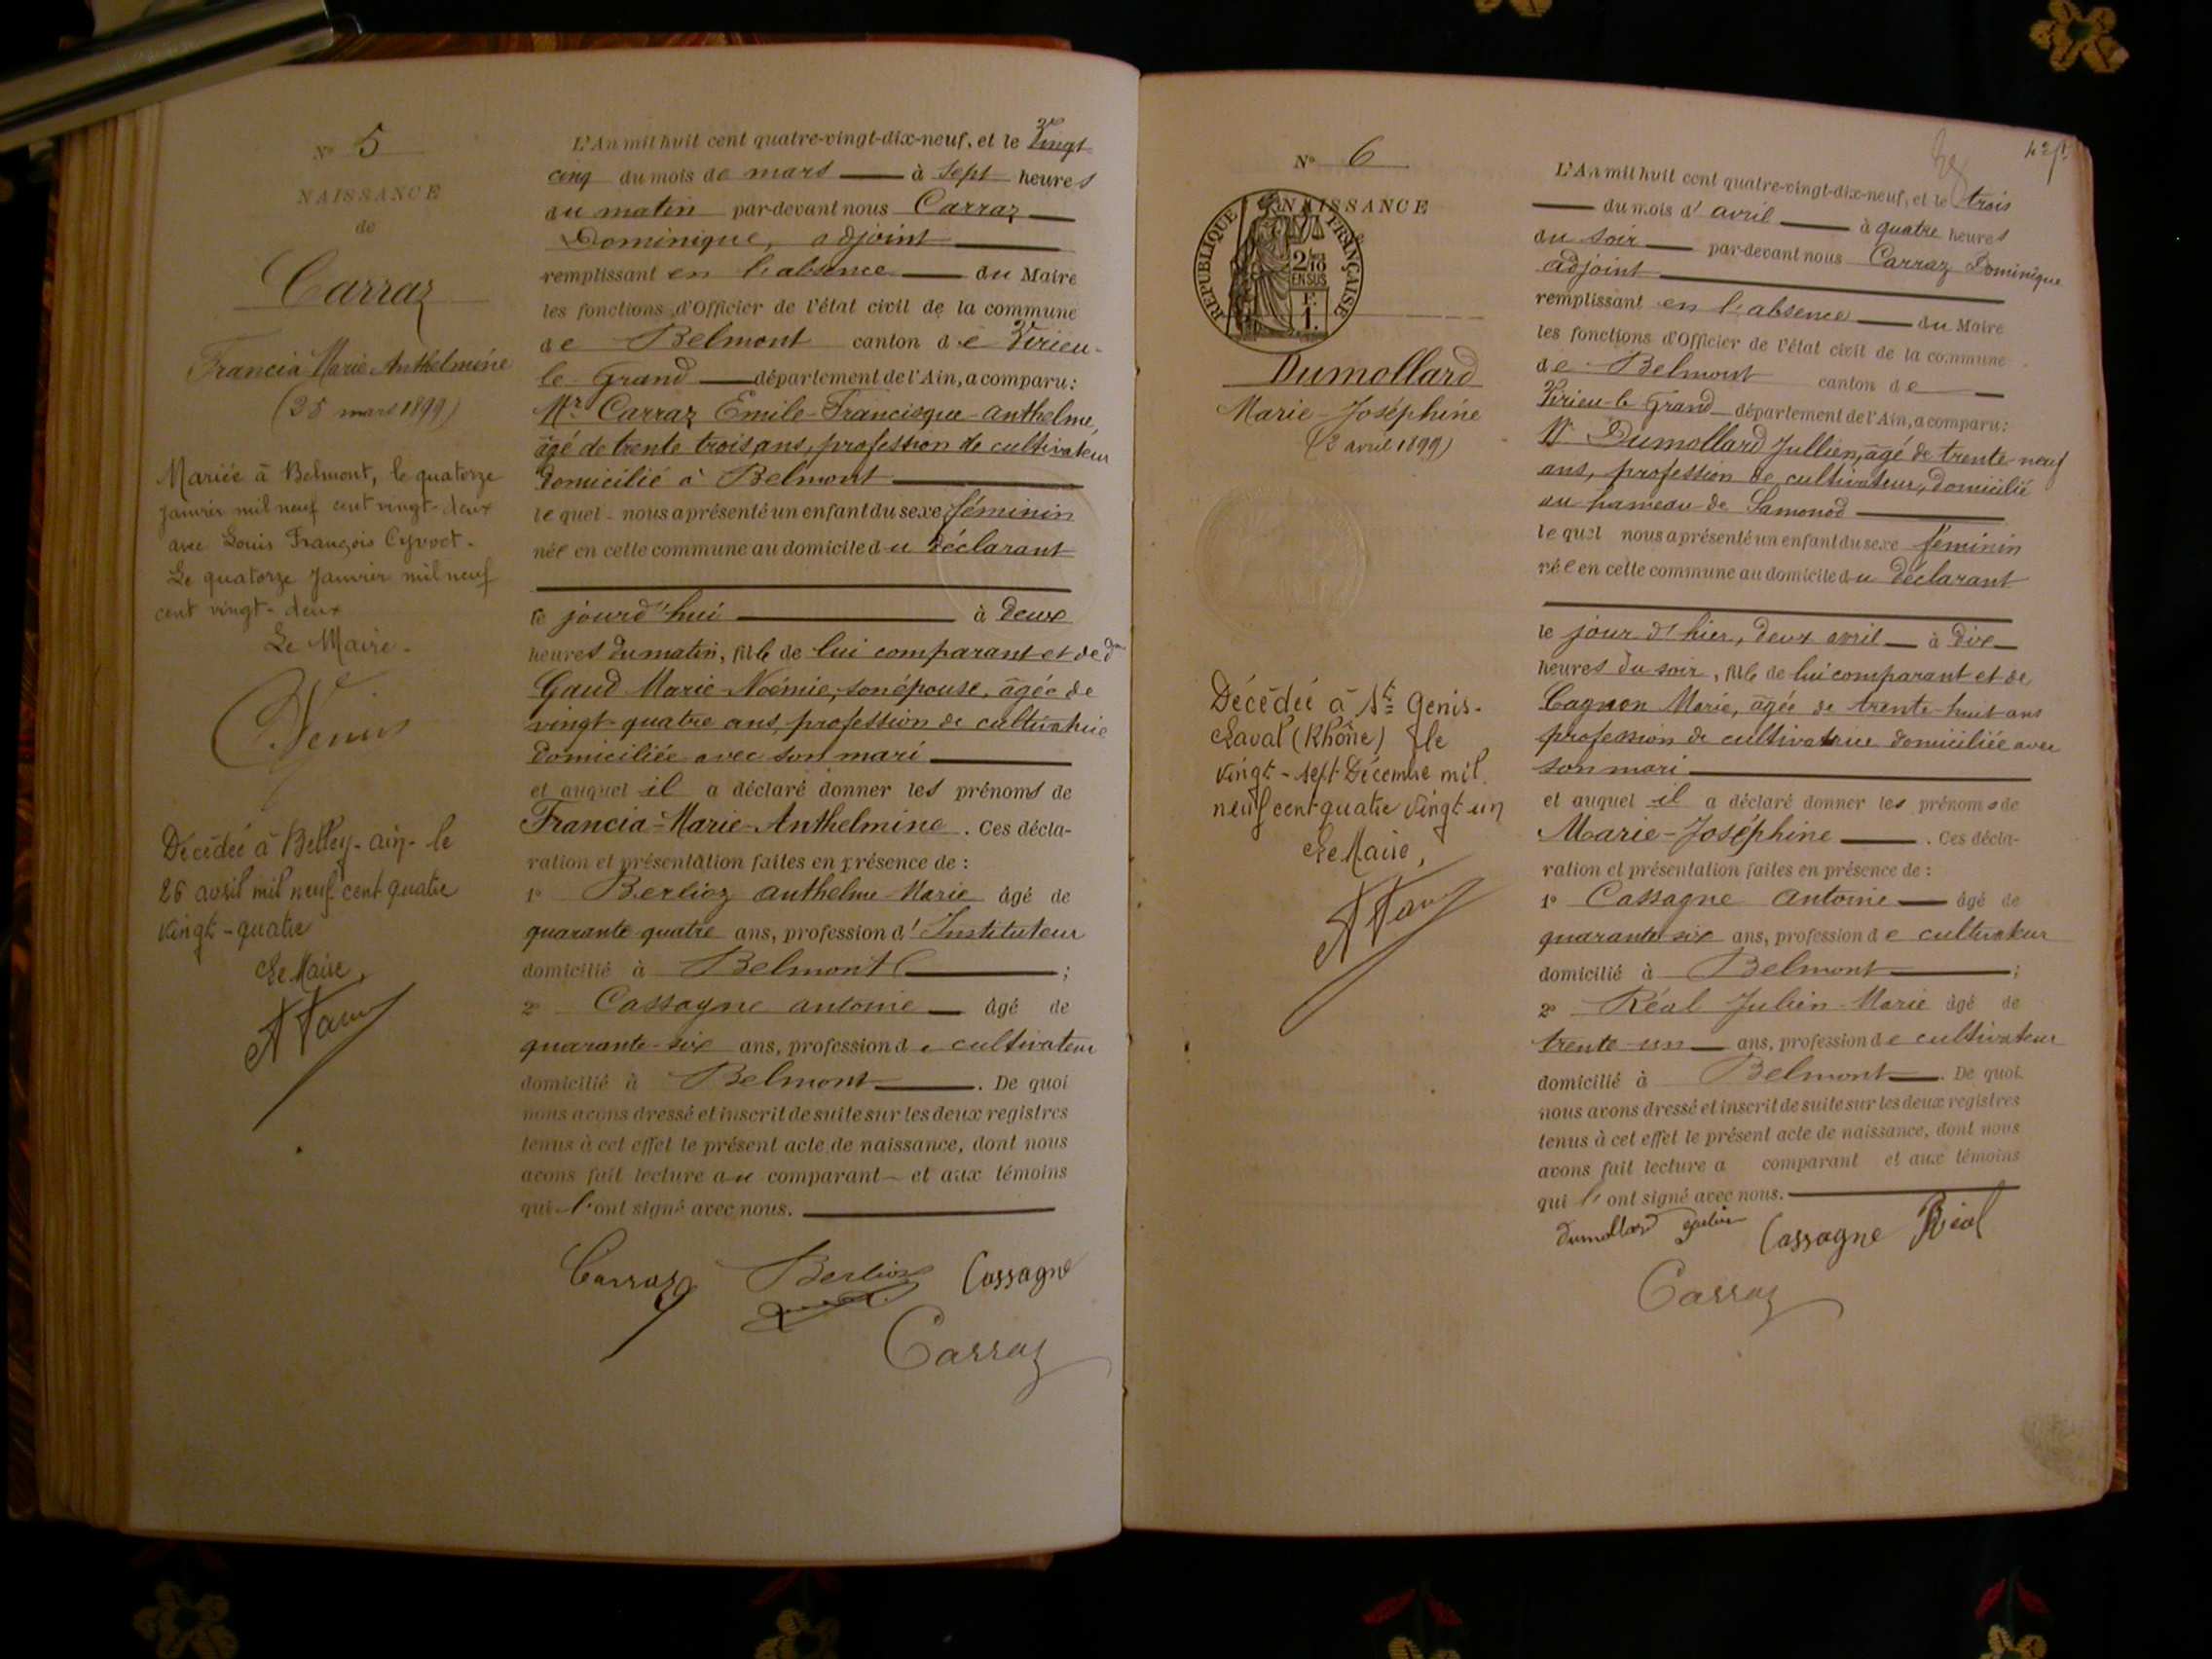 N° 5
NAISSANCE
de
Carraz
Francia-Marie-Anthelmine
(25 mars 1899)
Mariée à Belmont, le quatorze
janvier mil neuf cent vingt-deux
avec Louis François Cyvoct.
Le quatorze Janvier mil neuf
cent vingt-deux
Le Maire.
Décédée à Belley-Ain-le
26 avril mil neuf cent quatre
vingt-quatre
Le Maire,
L'An mil huit cent quatre-vingt-dix-neuf, et le Vingt-
cinq du mois de mars à sept heures
du matin par-devant nous Carraz
Dominique, adjoint
remplissant en l'absence du Maire
les fonctions d'Officier de l'état civil de la commune
de Belmont canton de Virieu-
le-Grand département de l'Ain, a comparu :
Mr Carraz Emile-Francisque-Anthelme,
âgé de trente trois ans, profession de cultivateur
domicilié à Belmont
lequel nous a présenté un enfant du sexe féminin
née en cette commune au domicile du déclarant
le jourd'hui à deux
heures du matin, fille de lui comparant et de d
Gaud Marie Noémie, son épouse, âgée de
vingt-quatre ans, profession de cultivatrice
domiciliée avec son mari
et auquel il a déclaré donner les prénoms de
Francia-Marie-Anthelmine. Ces décla-
ration et présentation faites en présence de :
1° Berlioz Anthelme-Marie âgé de
quarante quatre ans, profession d'Instituteur
domicilié à Belmont ;
2° Cassagne antoine âgé de
quarante-six ans, profession de cultivateur
domicilié à Belmont . De quoi
nous avons dressé et inscrit de suite sur les deux registres
tenus à cet effet le présent acte de naissance, dont nous
avons fait lecture au comparant et aux témoins
qui l'ont signé avec nous.
Carraz Berlioz Cassagne
Carraz
N° 6
NAISSANCE
REPUBLIQUE FRANÇAISE
2/10
EN SUS
F.
1.
Dumollard
Marie-Joséphine
(2 avril 1899)
Décédée à St Genis-
Laval (Rhône) le
vingt-sept Décembre mil
neuf cent quatre vingt-un
Le Maire,
L'An mil huit cent quatre-vingt-dix-neuf, et le trois
du mois d'avril à quatre heures
du soir par-devant nous Carraz Dominique
adjoint
remplissant en l'absence du Maire
les fonctions d'Officier de l'état civil de la commune
de Belmont canton de
Virieu-le-Grand département de l'Ain, a comparu :
Mr Dumollard Jullien, âgé de trente-neuf
ans, profession de cultivateur, domicilié
au hameau de Samonod
lequel nous a présenté un enfant du sexe féminin
née en cette commune au domicile du déclarant
le jour d'hier, deux avril à dix
heures du soir, fille de lui comparant et de
Cagnon Marie, âgée de trente-huit ans
profession de cultivatrice domiciliée avec
son mari
et auquel il a déclaré donner les prénoms de
Marie-Joséphine . Ces décla-
ration et présentation faites en présence de :
1° Cassagne Antoine âgé de
quarante six ans, profession de cultivateur
domicilié à Belmont ;
2° Réal Julien-Marie âgé de
trente-un ans, profession de cultivateur
domicilié à Belmont . De quoi
nous avons dressé et inscrit de suite sur les deux registres
tenus à cet effet le présent acte de naissance, dont nous
avons fait lecture a comparant et aux témoins
qui l'ont signé avec nous.
Dumollard Julien Cassagne Réal
Carraz